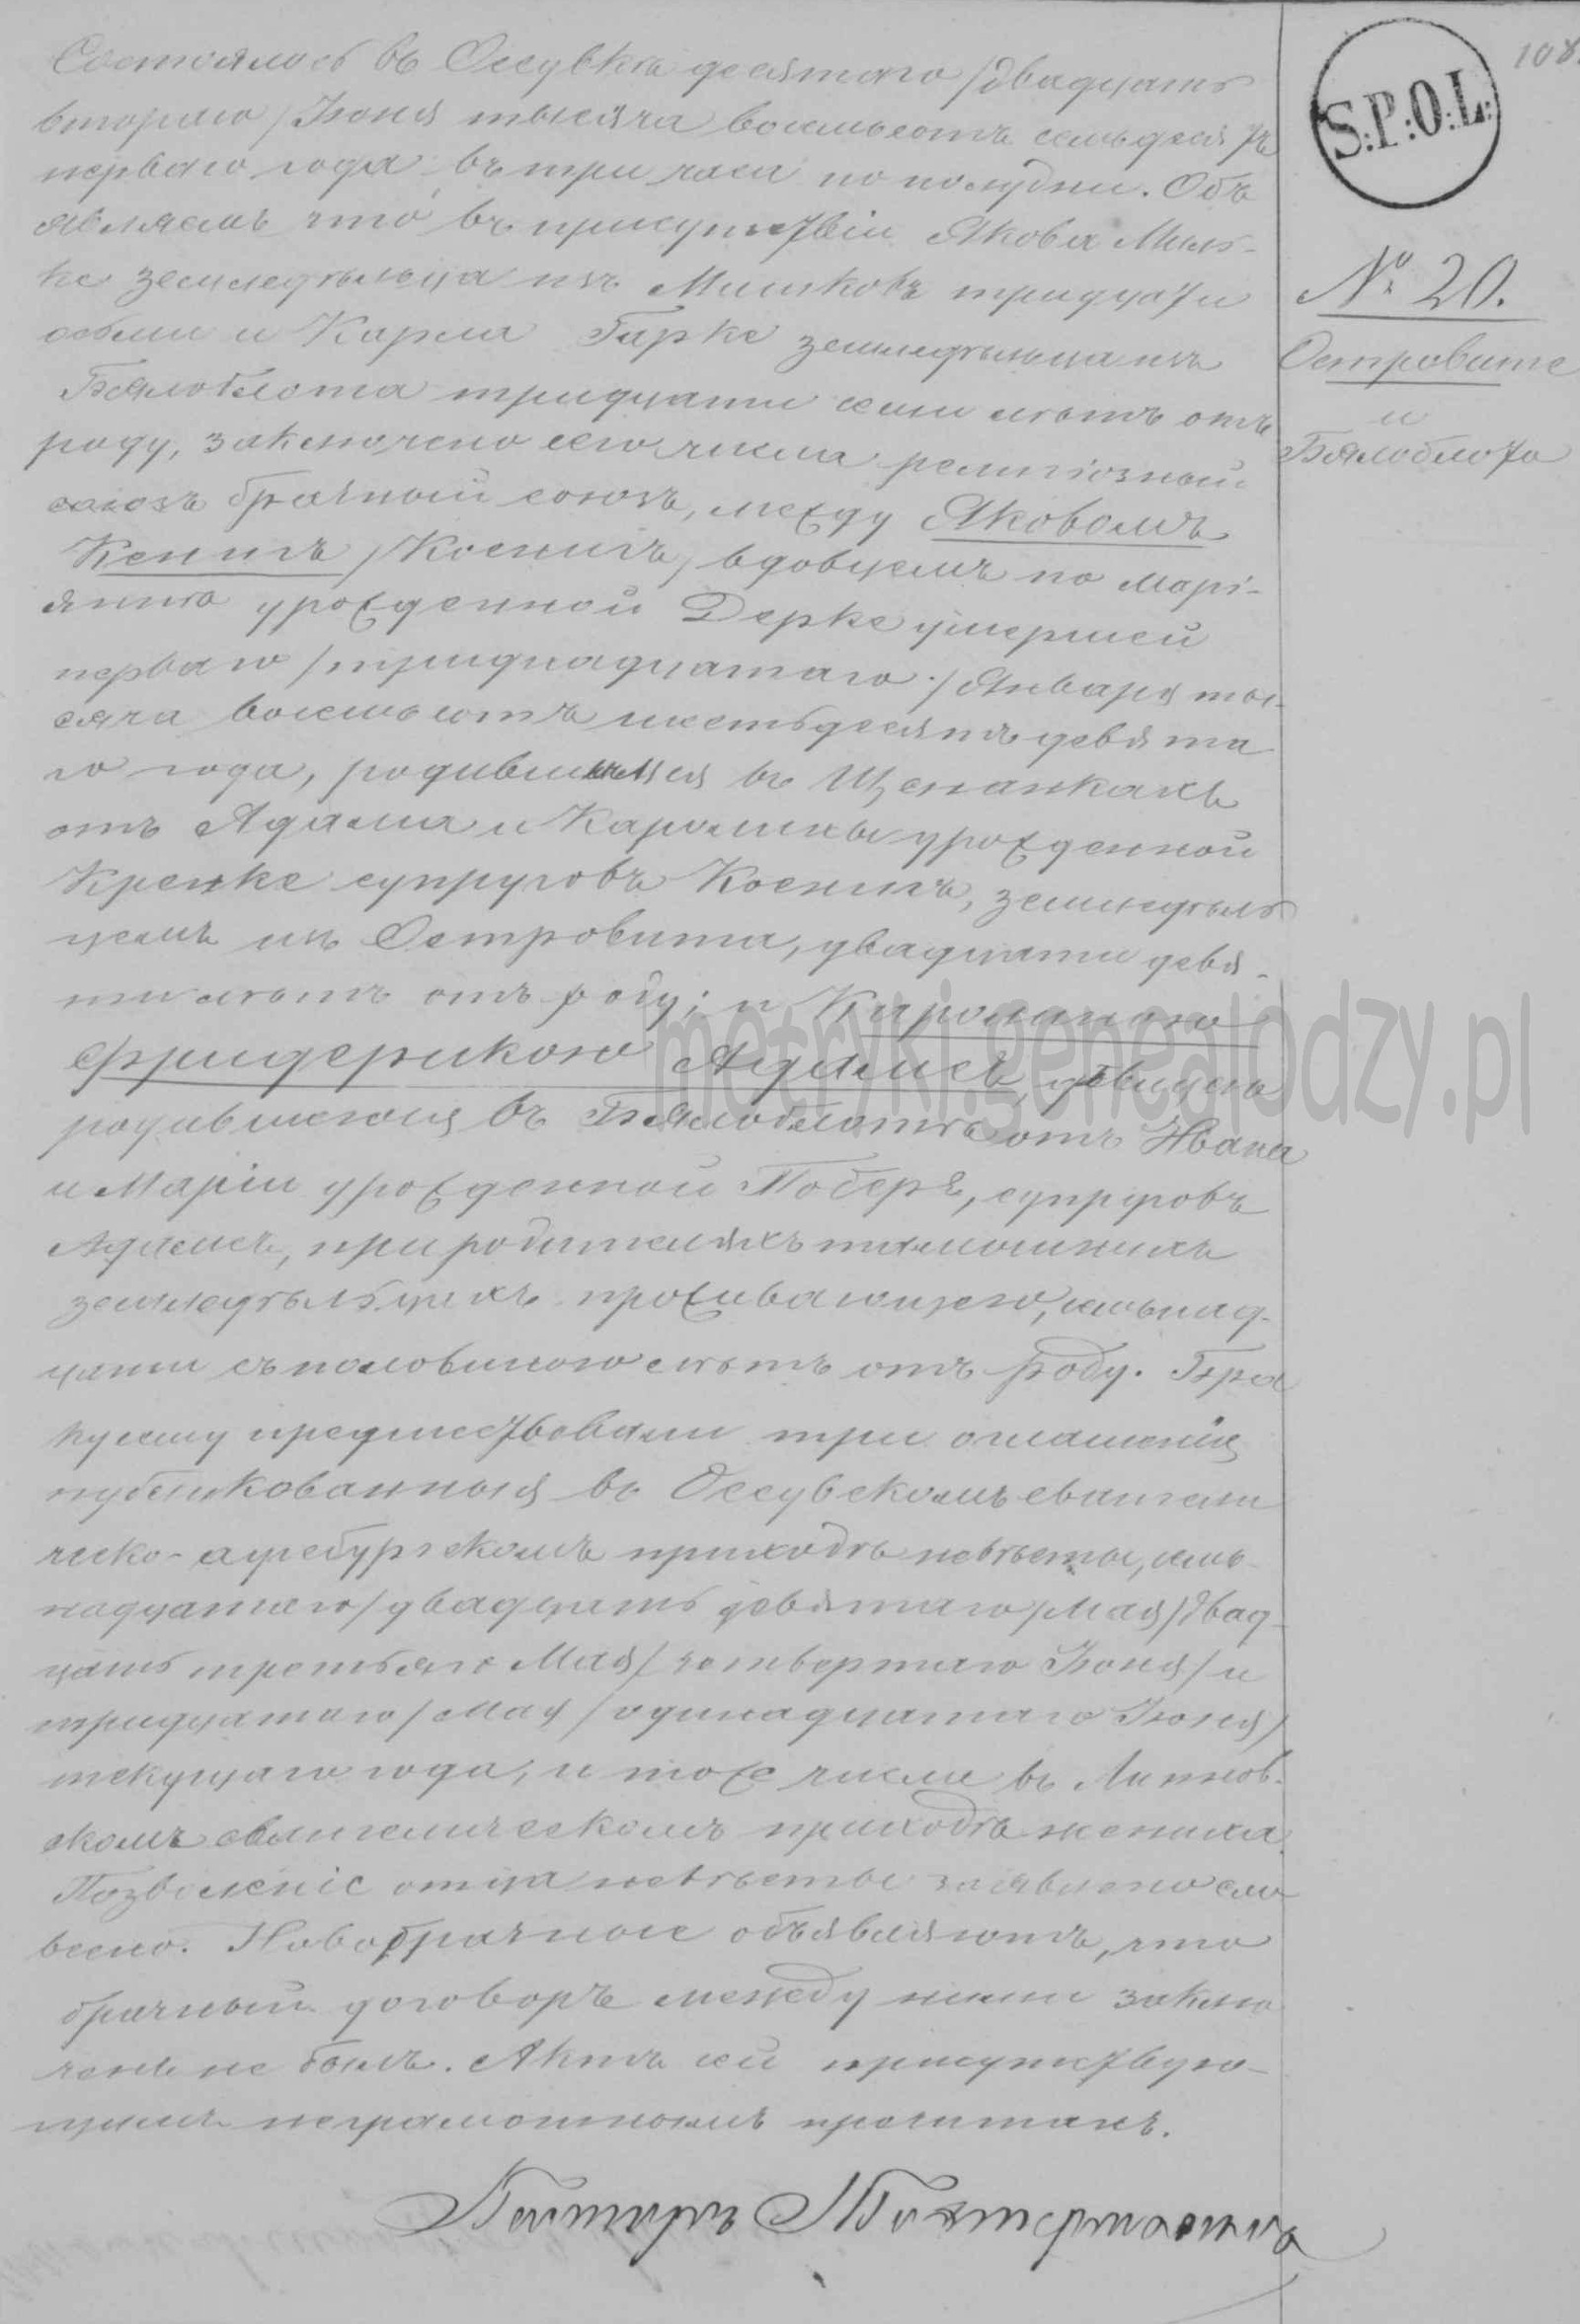 108.
S:P:O:L:
№ 20.
Островите
и
Бялоблото
Состоялось въ Оссувкѣ десятаго /двадцать
втораго/ Іюня тысяча восемьсотъ семьдесятъ
перваго года въ три часа по полудни. Объ
являемъ что въ присутствіи Якова Миль-
ке земледѣльца изъ Мишковъ тридцати
осьми и Карла Гарке земледѣльца изъ
Бялоблота тридцати семи лѣтъ отъ
роду, заключено сего числа религіозный
союзъ брачный союзъ, между Яковомъ
Кенигъ /Коенигъ/ вдовцемъ по Марі-
яннѣ урожденной Дерке умершей
перваго /тринадцатаго/ Января ты-
сяча восемьсотъ шестьдесятъ девята
го года, родившимся въ Щепанкахъ
отъ Адама и Каролины урожденной
Кренке супруговъ Коенигъ, земледѣль
цемъ изъ Островита, двадцати девя-
ти лѣтъ отъ роду; и Каролиною
Фридерикою Адамсъ, дѣвицею
родившеюся въ Бялоблотѣ отъ Ивана
и Маріи урожденной Тоберъ, супруговъ
Адамсъ, при родителяхъ тамошнихъ
земледѣльцахъ проживающею, семнад-
цати съ половиною лѣтъ отъ роду. Бра
ку сему предшествовали три оглашенія
публикованныя въ Оссувскомъ евангели
ческо-аугсбургскомъ приходѣ невѣсты, семь-
надцатаго /двадцать девятаго/ Мая /двад-
цать третьяго Мая/ четвертаго Іюня/ и
тридцатаго /Мая/ одинадцатаго Іюня/
текущаго года, и тоже числа въ Липнов-
скомъ евангелическомъ приходѣ жениха.
Позволеніе отца невѣсты заявлено сло
весно. Новобрачные объявляютъ, что
брачный договоръ между ними заклю
ченъ не былъ. Актъ сей присутствую-
щимъ неграмотнымъ прочитанъ.
Пасторъ
metryki.genealodzy.pl